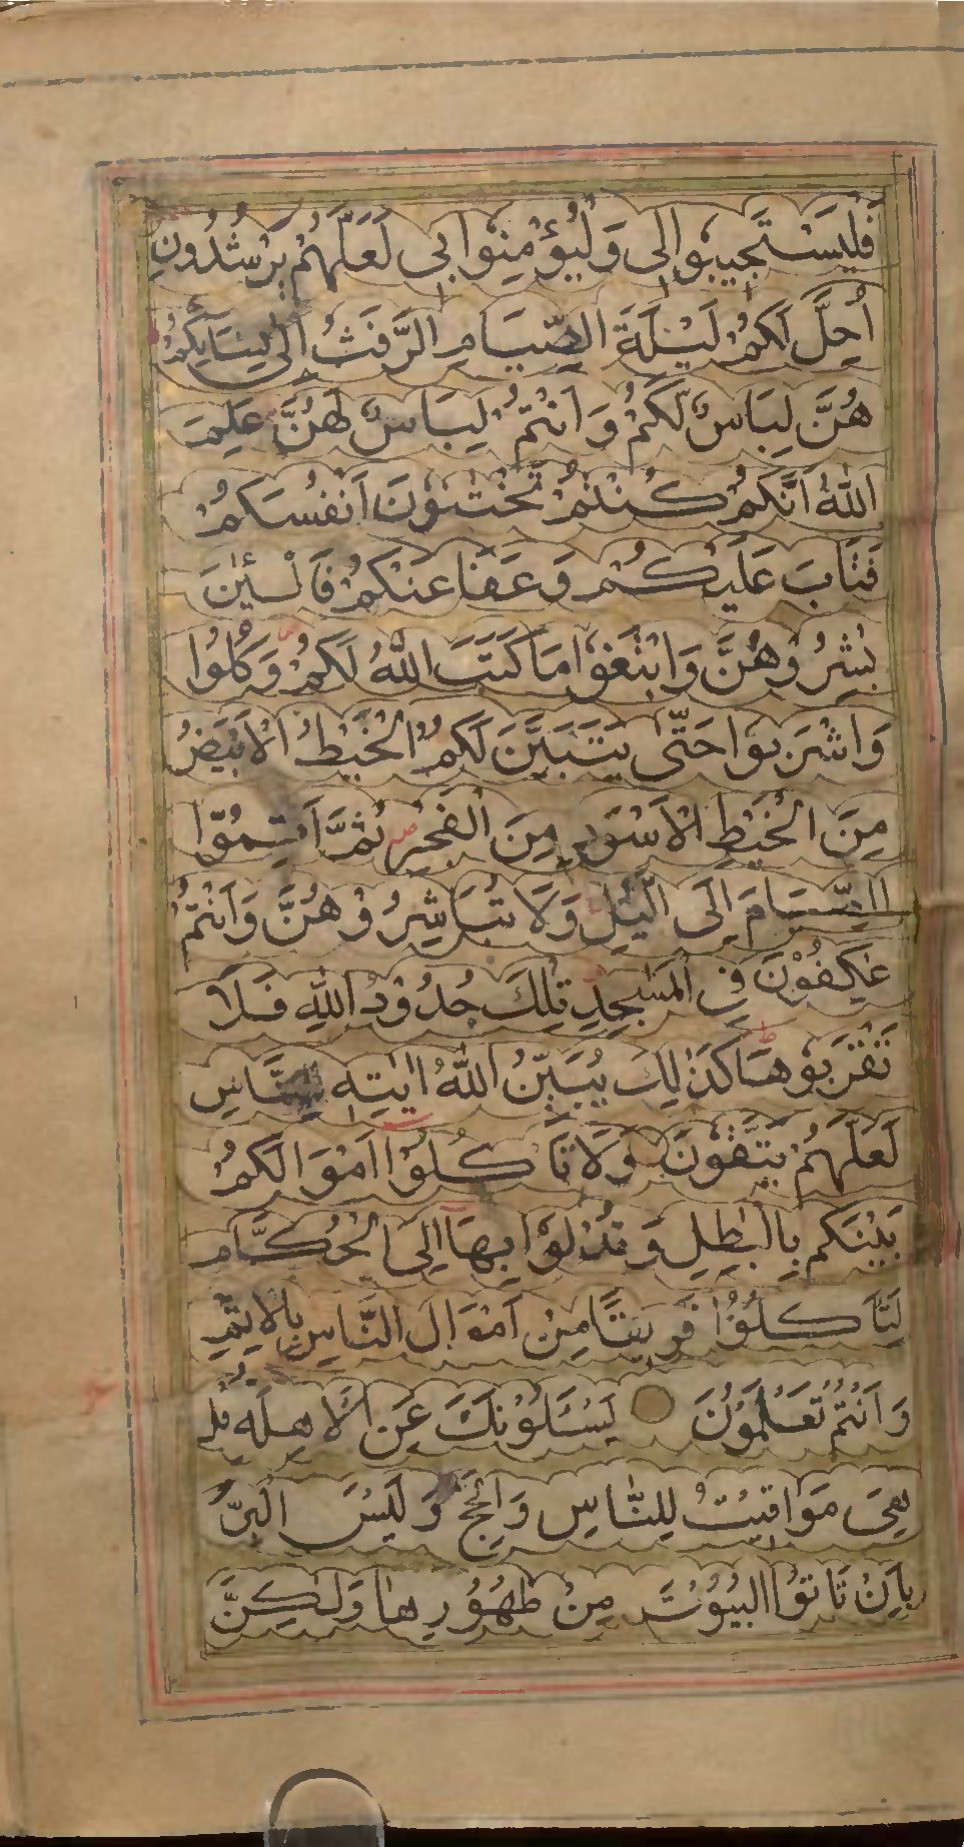 فَلْيَسْتَجِيبُوا لِى وَلْيُؤْمِنُوا بِى لَعَلَّهُمْ يَرْشُدُونَ
أُحِلَّ لَكُمْ لَيْلَةَ الصِّيَامِ الرَّفَثُ إِلَى نِسَائِكُمْ
هُنَّ لِبَاسٌ لَكُمْ وَأَنْتُمْ لِبَاسٌ لَهُنَّ عَلِمَ
اللهُ أَنَّكُمْ كُنْتُمْ تَخْتَانُونَ أَنْفُسَكُمْ
فَتَابَ عَلَيْكُمْ وَعَفَا عَنْكُمْ فَالْئٰنَ
بٰشِرُوْهُنَّ وَابْتَغُوا مَا كَتَبَ اللهُ لَكُمْ وَكُلُوا
وَاشْرَبُوا حَتّٰى يَتَبَيَّنَ لَكُمُ الْخَيْطُ الْاَبْيَضُ
مِنَ الْخَيْطِ الْاَسْوَدِ مِنَ الْفَجْرِ ثُمَّ اَتِمُّوا
الصِّيَامَ اِلَى الَّيْلِ وَلَا تُبَاشِرُوْهُنَّ وَاَنْتُمْ
عٰكِفُوْنَ فِى الْمَسٰجِدِ تِلْكَ حُدُوْدُ اللهِ فَلَا
تَقْرَبُوْهَا كَذٰلِكَ يُبَيِّنُ اللهُ اٰيٰتِهِ لِلنَّاسِ
لَعَلَّهُمْ يَتَّقُوْنَ وَلَا تَأْكُلُوْا اَمْوَالَكُمْ
بَيْنَكُمْ بِالْبَاطِلِ وَتُدْلُوْا بِهَا اِلَى الْحُكَّامِ
لِتَأْكُلُوْا فَرِيْقًا مِنْ اَمْوَالِ النَّاسِ بِالْاِثْمِ
وَاَنْتُمْ تَعْلَمُوْنَ يَسْئَلُوْنَكَ عَنِ الْاَهِلَّهِ قُلْ
هِىَ مَوَاقِيْتُ لِلنَّاسِ وَالْحَجِّ وَلَيْسَ الْبِرُّ
بِاَنْ تَاْتُوا الْبُيُوْتَ مِنْ ظُهُوْرِهَا وَلٰكِنَّ